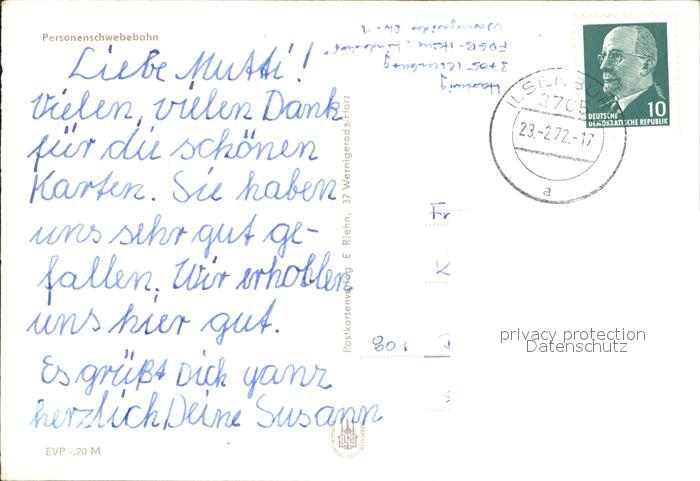 Personenschwebebahn
Liebe Mutti!
Vielen, vielen Dank
für die schönen
Karten. Sie haben
uns sehr gut ge-
fallen. Wir erhohlen
uns hier gut.
Es grüßt Dich ganz
herzlich Deine Susann
EVP -,20 M
Postkartenverlag E. Riehn, 37 Wernigerode/Harz
3705 Ilsenburg
ILSENBURG
3705
23.-2.72.-17
a
10
DEUTSCHE
DEMOKRATISCHE REPUBLIK
108
privacy protection
Datenschutz